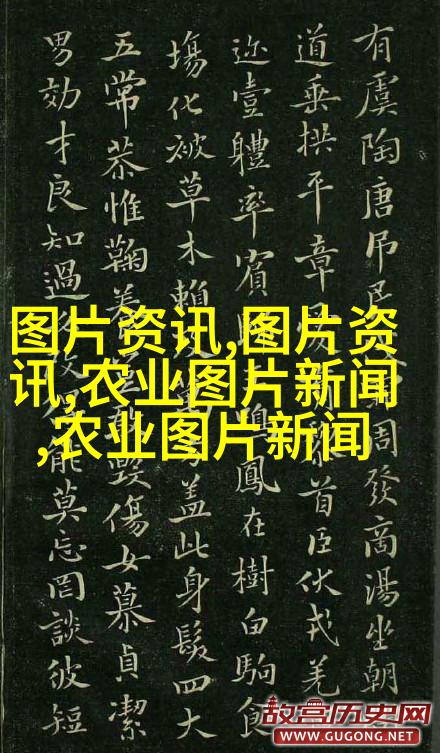 有虞陶唐吊民周發商湯坐朝
道垂拱平章首臣伏戎羌
迩壹體率賓鳳在樹白駒食
塲化被草木賴蓋此身髮四大
五常恭惟鞠養敢毀傷女慕貞潔
男効才良知過能莫忘罔談彼短
图片资讯,图片资
讯,农业图片新闻
,农业图片新闻
故宫历史网
WWW.GUGONG.NET